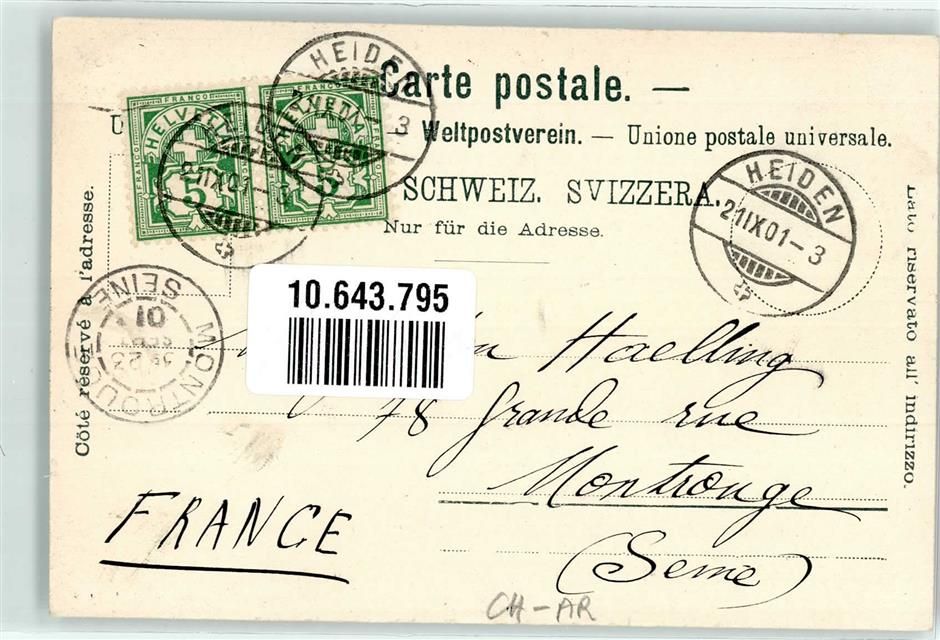 Carte postale. —
Weltpostverein. — Unione postale universale.
SCHWEIZ. SVIZZERA.
Nur für die Adresse.
Côté réservé à l'adresse.
Lato riservato all' indirizzo.
FRANCO
HELVETIA
5
FRANCO
HELVETIA
5
HEIDEN
3
21 IX 01 - 3
HEIDEN
21 IX 01 - 3
MONTROUGE
SEINE
23
01
10.643.795
Haelling
78 Grande rue
Montrouge
(Seine)
FRANCE
CH-AR